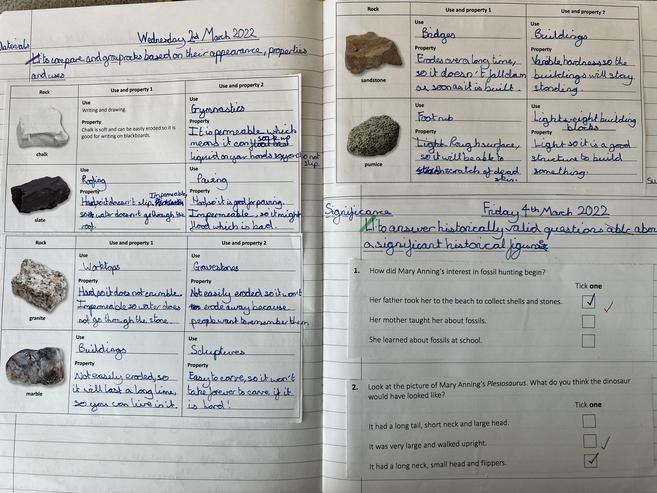 Materials
Wednesday 2nd March 2022
LI to compare and group rocks based on their appearance, properties
and uses
Rock
Use and property 1
Use and property 2
chalk
Use
Writing and drawing.
Property
Chalk is soft and can be easily eroded so it is
good for writing on blackboards.
Use
Gymnastics
Property
It is permeable which
means it can soak up
liquid on your hands so you do not
slip
slate
Use
Roofing
Property
Hard so it doesn't slip. Impermeable,
so water doesn't go through the
roof.
Use
Paving
Property
Hard so it is good for paving.
Impermeable, so it might
flood which is hard.
Rock
Use and property 1
Use and property 2
granite
Use
Worktops
Property
Hard so it does not crumble.
Impermeable so water does
not go through the stone.
Use
Gravestones
Property
Not easily eroded so it won't
erode away because
people want to remember them
marble
Use
Buildings
Property
Not easily eroded, so
it will last a long time,
so you can live in it.
Use
Sculptures
Property
Easy to carve, so it won't
take forever to carve if it
is hard!
Rock
Use and property 1
Use and property 2
sandstone
Use
Bridges
Property
Erodes over a long time,
so it doesn't fall down
as soon as it is built.
Use
Buildings
Property
Variable hardness so the
buildings will stay
standing.
pumice
Use
Foot rub
Property
Light. Rough surface,
so it will be able to
scratch of dead
skin.
Use
Lightweight building
blocks
Property
Light so it is a good
structure to build
something.
Significance
Friday 4th March 2022
LI to answer historically valid questions about
a significant historical figure
1. How did Mary Anning's interest in fossil hunting begin?
Tick one
Her father took her to the beach to collect shells and stones.
Her mother taught her about fossils.
She learned about fossils at school.
2. Look at the picture of Mary Anning's Plesiosaurus. What do you think the dinosaur
would have looked like?
Tick one
It had a long tail, short neck and large head.
It was very large and walked upright.
It had a long neck, small head and flippers.